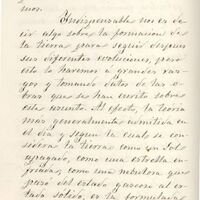 mos.
Indispensable nos es de-
cir algo sobre la formacion de
la tierra para seguir despues
sus diferentes evoluciones, pero
esto lo haremos á grandes ras-
gos y tomando datos de las o-
bras que se han escrito sobre
este asunto. Al efecto, la teoria
mas generalmente admitida en
el dia y segun la cual se con-
sidera la tierra como un Sol
apagado, como una estrella en-
friada, como una nebulosa que
pasó del estado gaseoso al es-
tado solido, es la formulada